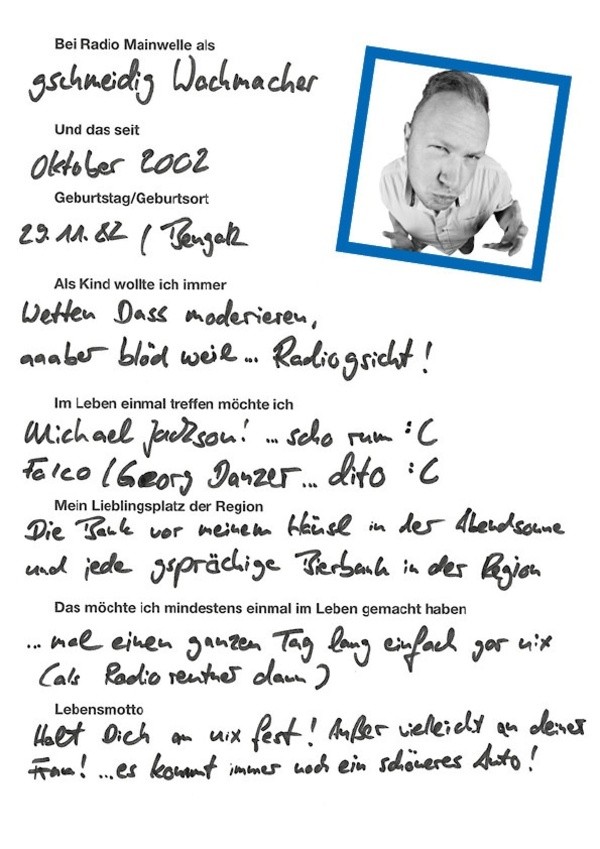 Bei Radio Mainwelle als
gschmeidig Wachmacher
Und das seit
Oktober 2002
Geburtstag/Geburtsort
29.11.82 / Bengatz
Als Kind wollte ich immer
Wetten Dass moderieren,
aaaber blöd weil... Radiogsicht!
Im Leben einmal treffen möchte ich
Michael Jackson! ... scho rum :C
Falco / Georg Danzer... dito :C
Mein Lieblingsplatz der Region
Die Bank vor meinem Häusl in der Abendsonne
und jede gsprächige Bierbank in der Region
Das möchte ich mindestens einmal im Leben gemacht haben
... mal einen ganzen Tag lang einfach gar nix
(als Radiorentner dann)
Lebensmotto
Halt Dich an nix fest! Außer vielleicht an deiner
Frau! ...es kommt immer noch ein schöneres Auto!